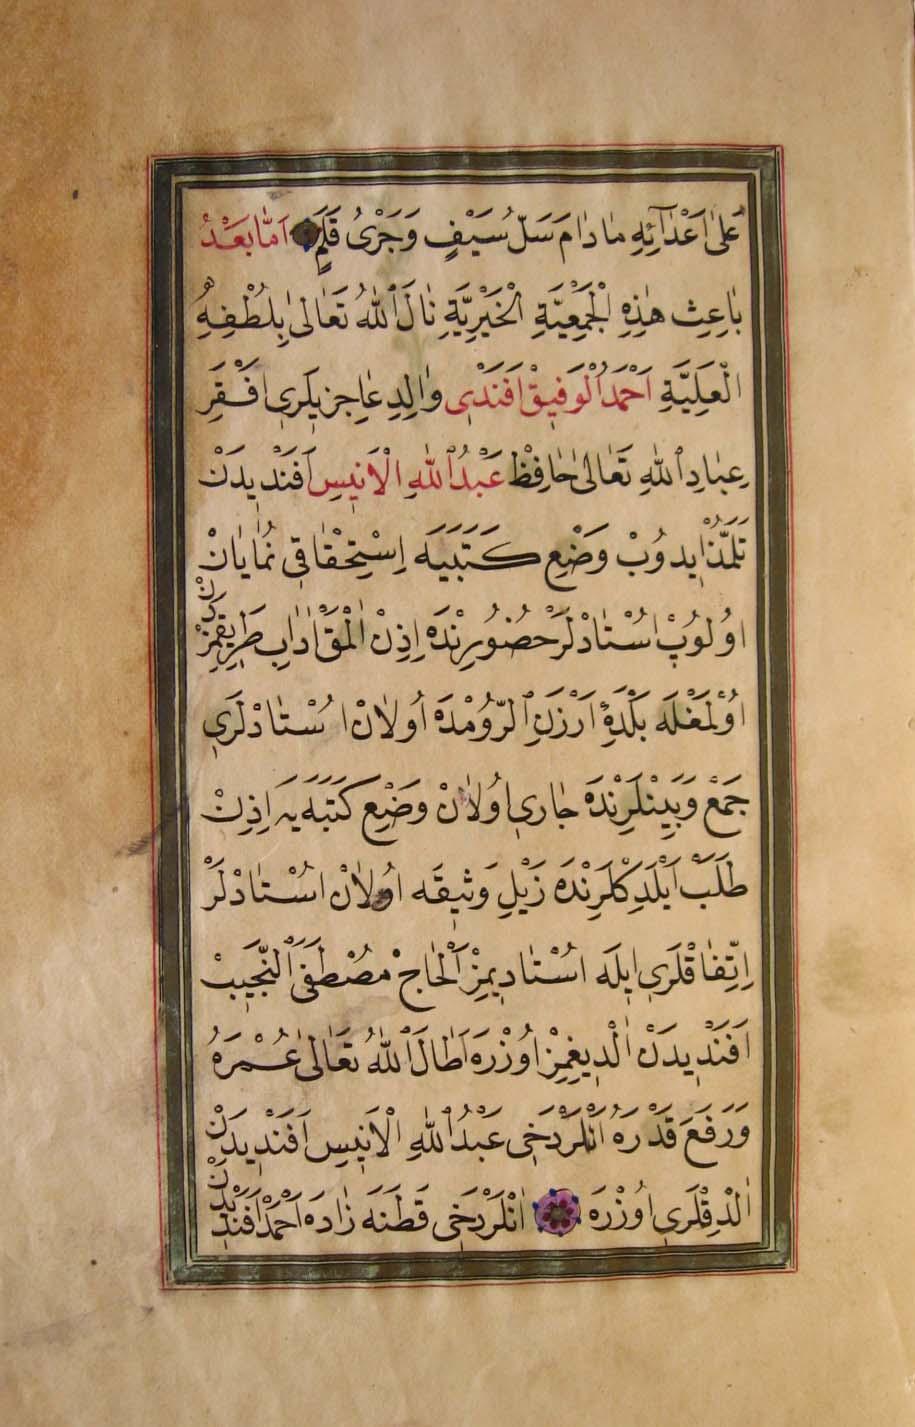 عَلٰى اَعْدَآئِهِ مٰا دٰامَ سَلَّ سُيَيْفٍ وَجَرْىُ قَلَمٍ اَمّٰا بَعْدُ
بٰاعِثِ هٰذِهِ الْجَمْعِيَّةِ الْخَيْرِيَّةِ نٰالَ اللّٰهُ تَعٰالٰى بِلُطْفِهِ
الْعَلِيَّةِ اَحْمَدُ الْوَفِيقْ اَفَنْدِى وٰالِدِ عٰاجِزِيلَرِى اَفْقَرِ
عِبٰادِ اللّٰهِ تَعٰالٰى حٰافِظْ عَبْدُ اللّٰهِ الْاَنِيسِ اَفَنْدِيدَنْ
تَلَمُّذْ اِيدُوبْ وَضْعِ كَتَبَيَه اِسْتِحْقٰاقِى نُمٰايٰانْ
اوُلوُبْ اُسْتٰادْلَرْ حُضوُرِنْدَه اِذِنْ الْمَقْ اٰدٰابِ طَرِيقِمِزْدَنْ
اوُلْمَغْلَه بَلْدَهِٔ اَرْزَنِ الرّوُمْدَه اوُلٰانْ اُسْتٰادْلَرِى
جَمْعْ وَبَيْنْلَرِنْدَه جٰارِى اوُلٰانْ وَضْعِ كَتَبَه يَه اِذِنْ
طَلَبْ اَيْلَدِكْلَرِنْدَه زَيْلِ وَثِيقَه اوُلٰانْ اُسْتٰادْلَرْ
اِتِّفٰاقْلَرِى اِيلَه اُسْتٰادِيمِزْ اَلْحٰاجْ مُصْطَفَى النَّجِيبْ
اَفَنْدِيدَنْ اَلْدِيغِمِزْ اوُزْرَه اَطٰالَ اللّٰهُ تَعٰالٰى عُمْرَهُ
وَرَفَعَ قَدْرَهُ اَنْلَرْدَخِى عَبْدُ اللّٰهِ الْاَنِيسِ اَفَنْدِيدَنْ
اَلْدِقْلَرِى اوُزْرَه اَنْلَرْدَخِى قَطَنَه زٰادَه اَحْمَدْ اَفَنْدِيدَنْ